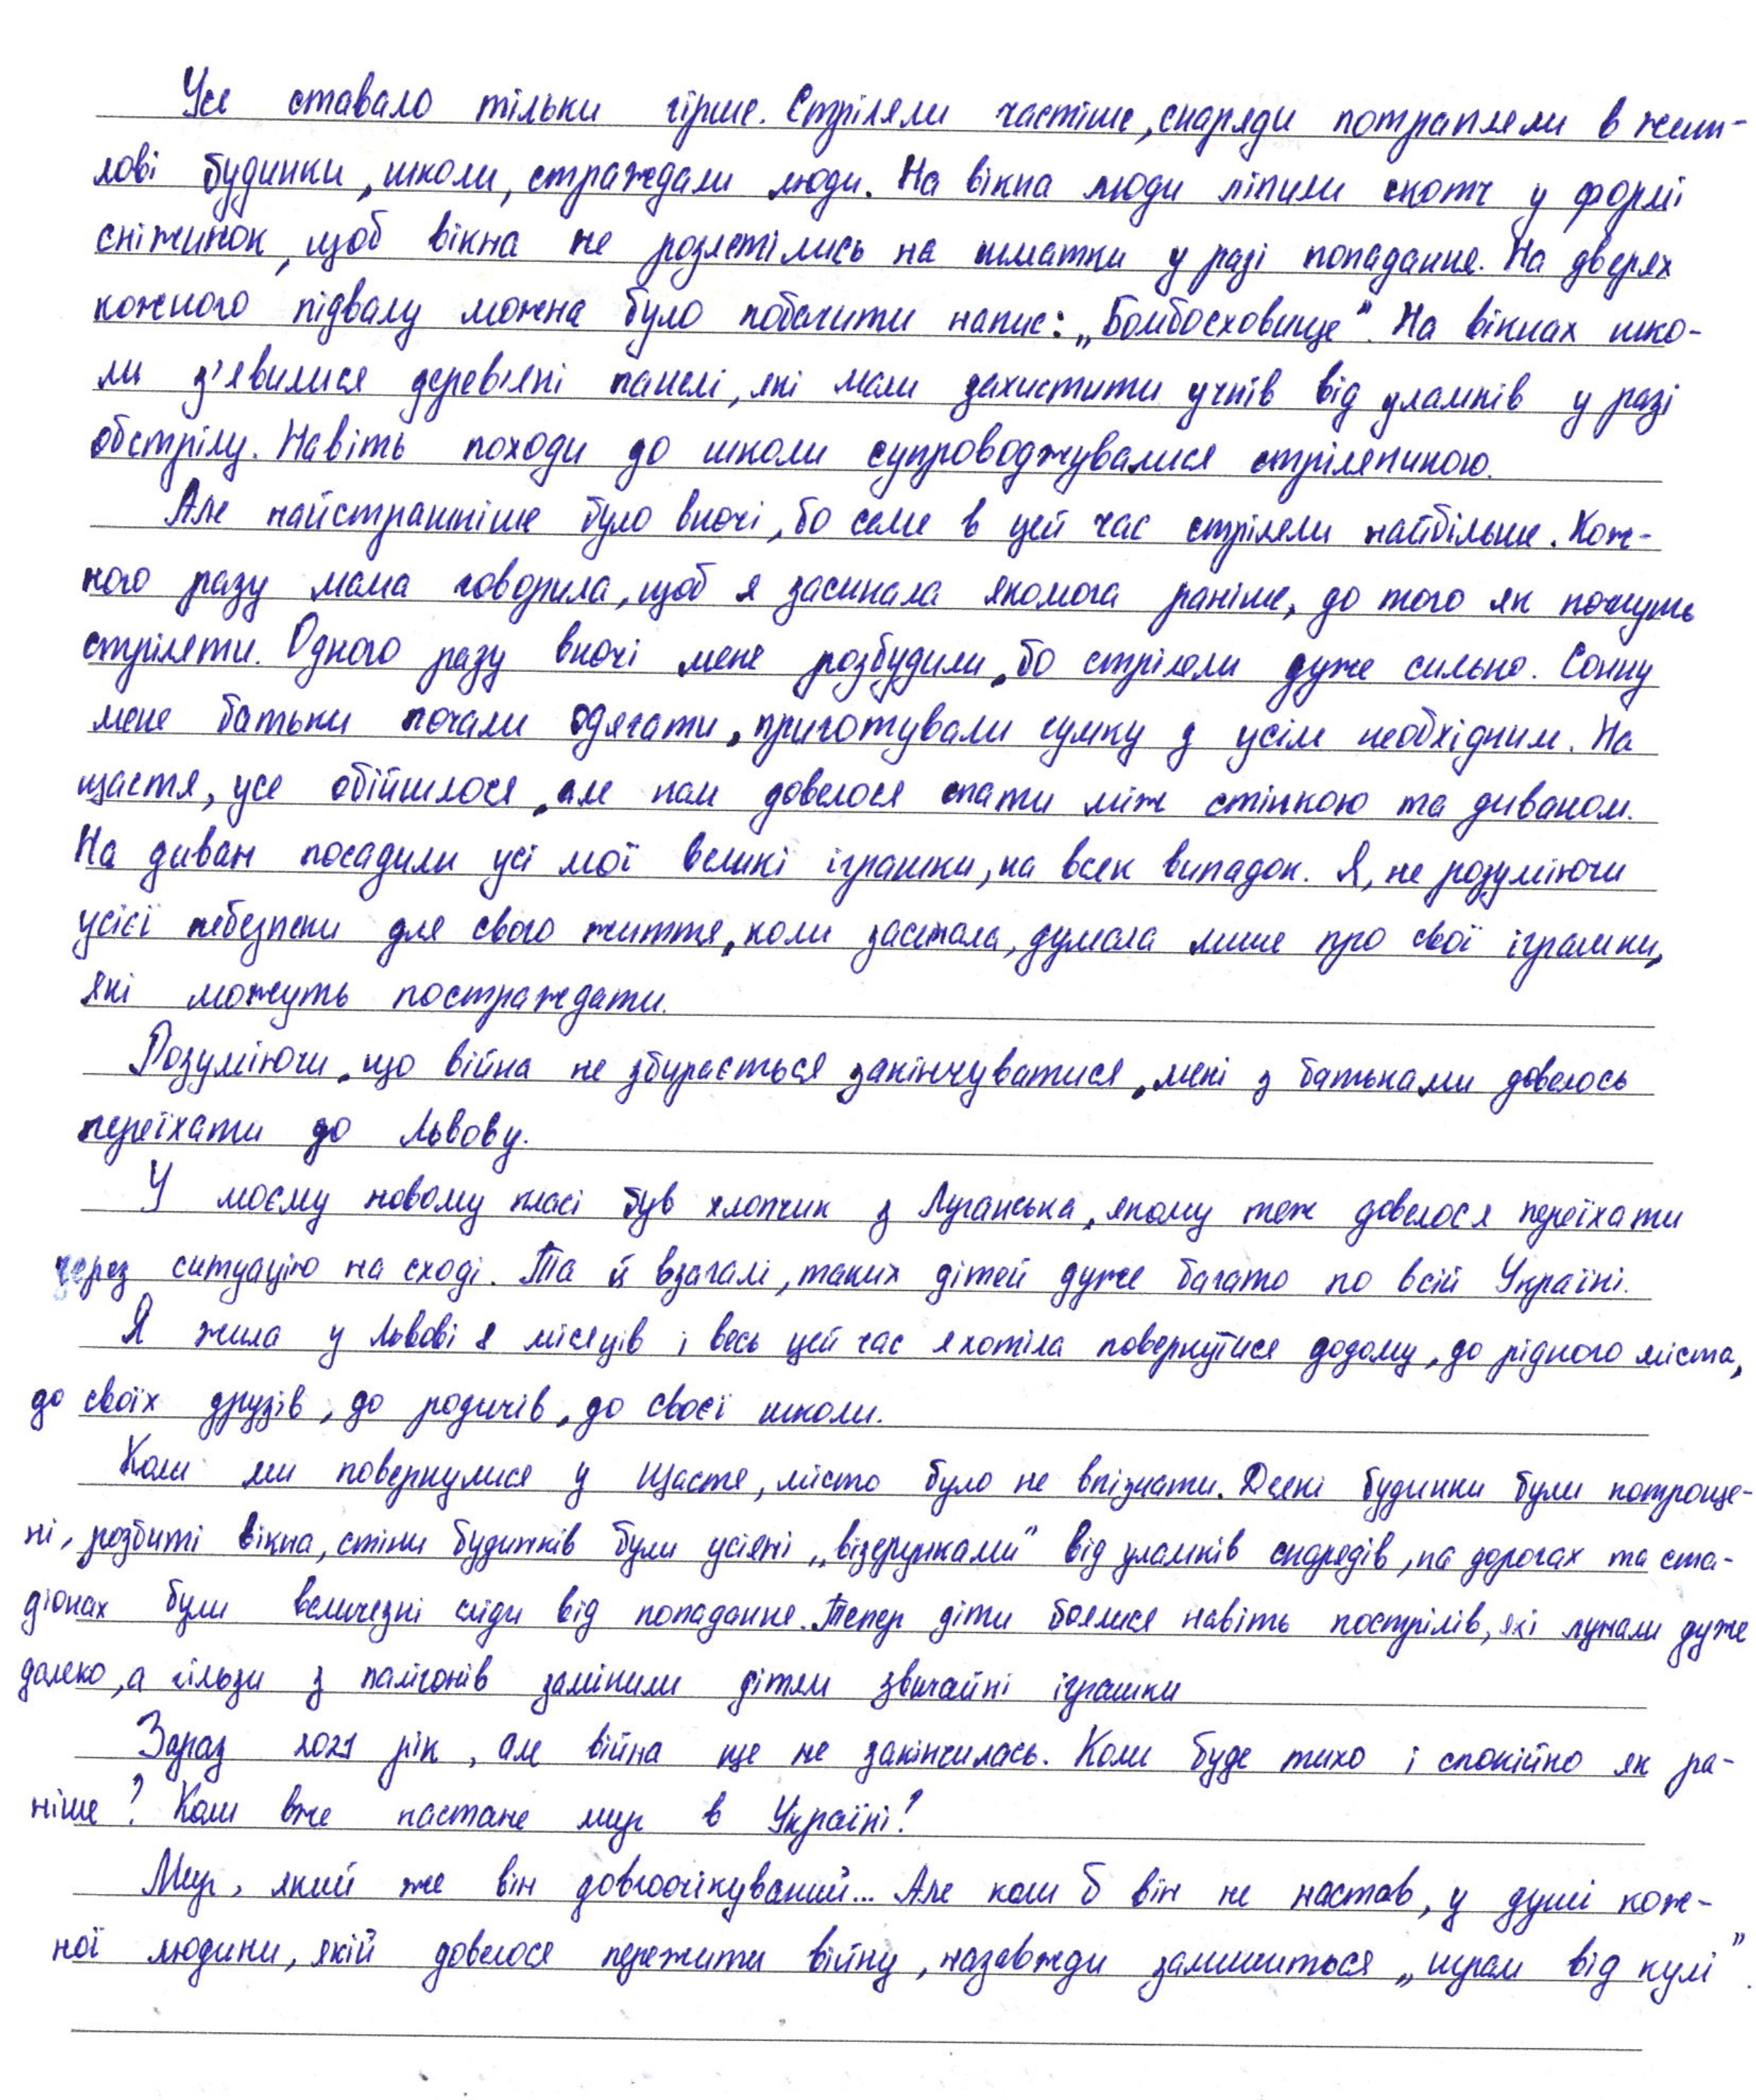 Усе ставало тільки гірше. Стріляли частіше, снаряди потрапляли в жит-
лові будинки, школи, страждали люди. На вікна люди ліпили скотч у формі
сніжинок, щоб вікна не розлетілись на шматки у разі попадання. На дверях
кожного підвалу можна було побачити напис: „Бомбосховище". На вікнах шко-
ли з'явилися дерев'яні панелі, які мали захистити учнів від уламків у разі
обстрілу. Навіть походи до школи супроводжувалися стріляниною.
Але найстрашніше було вночі, бо саме в цей час стріляли найбільше. Кож-
ного разу мама говорила, щоб я засинала якомога раніше, до того як почнуть
стріляти. Одного разу вночі мене розбудили, бо стріляли дуже сильно. Сонну
мене батьки почали одягати, приготували сумку з усім необхідним. На
щастя, усе обійшлося, але нам довелося спати між стінкою та диваном.
На диван посадили усі мої великі іграшки, на всяк випадок. Я, не розуміючи
усієї небезпеки для свого життя, коли засинала, думала лише про свої іграшки,
які можуть постраждати.
Розуміючи, що війна не збирається закінчуватися, мені з батьками довелось
переїхати до Львову.
У моєму новому класі був хлопчик з Луганська, якому теж довелося переїхати
через ситуацію на сході. Та й взагалі, таких дітей дуже багато по всій Україні.
Я жила у Львові 8 місяців і весь цей час я хотіла повернутися додому, до рідного міста,
до своїх друзів, до родичів, до своєї школи.
Коли ми повернулися у Щастя, місто було не впізнати. Деякі будинки були потроще-
ні, розбиті вікна, стіни будинків були усіяні „візерунками" від уламків снарядів, на дорогах та ста-
діонах були величезні сліди від попадання. Тепер діти боялися навіть пострілів, які лунали дуже
далеко, а гільзи з полігонів замінили дітям звичайні іграшки
Зараз 2021 рік, але війна ще не закінчилась. Коли буде тихо і спокійно як ра-
ніше? Коли вже настане мир в Україні?
Мир, який же він довгоочікуваний... Але коли б він не настав, у душі кож-
ної людини, якій довелося пережити війну, назавжди залишиться „шрам від кулі".